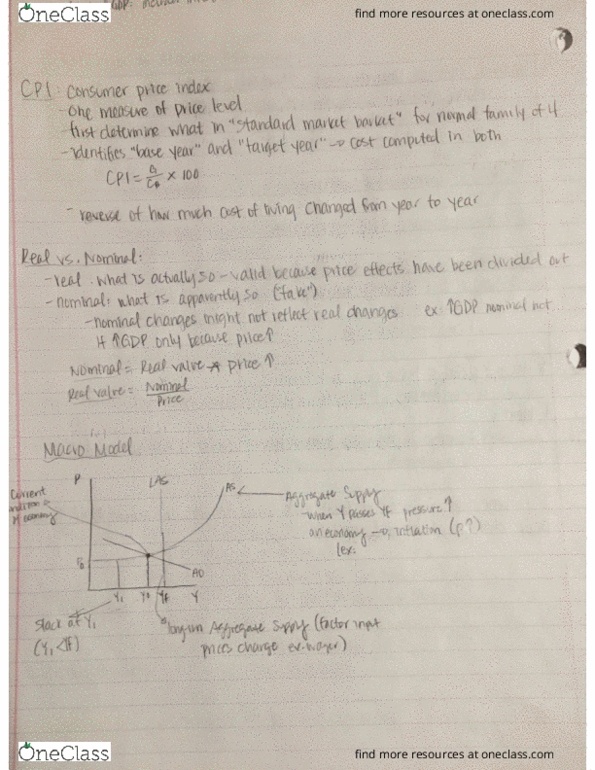 OneClass
find more resources at oneclass.com
CPI: Consumer price index
- One measure of price level
- first determine what in "standard market basket" for normal family of 4
- identifies "base year" and "target year" → cost computed in both
CPI = × 100
- reverse of how much cost of living changed from year to year
Real vs. Nominal:
- real: what is actually so - valid because price effects have been divided out
- nominal: what is apparently so ("fake")
- nominal changes might not reflect real changes ex ↑GDP nominal not
if ↑GDP only because price↑
Nominal = Real value * price ↑
Real value = Nominal / Price
Macro Model
P
LAS
AS
Aggregate Supply
Current
of economy
when Y passes Yf pressure ↑
on economy → inflation (P?)
(ex.
P0
AD
Y1 Y0 Yf Y
slack at Y1
(Y1 < Yf)
long run Aggregate Supply (factor input
prices change ex-wages)
OneClass
find more resources at oneclass.com